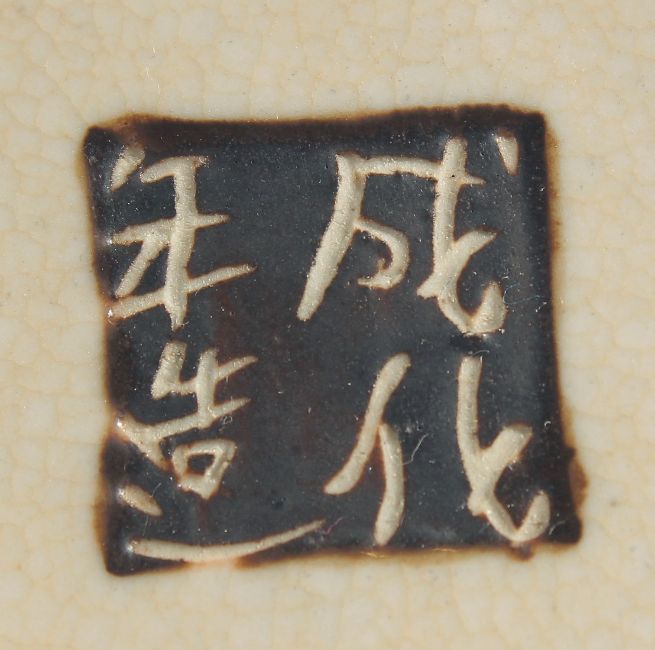 成化
年造